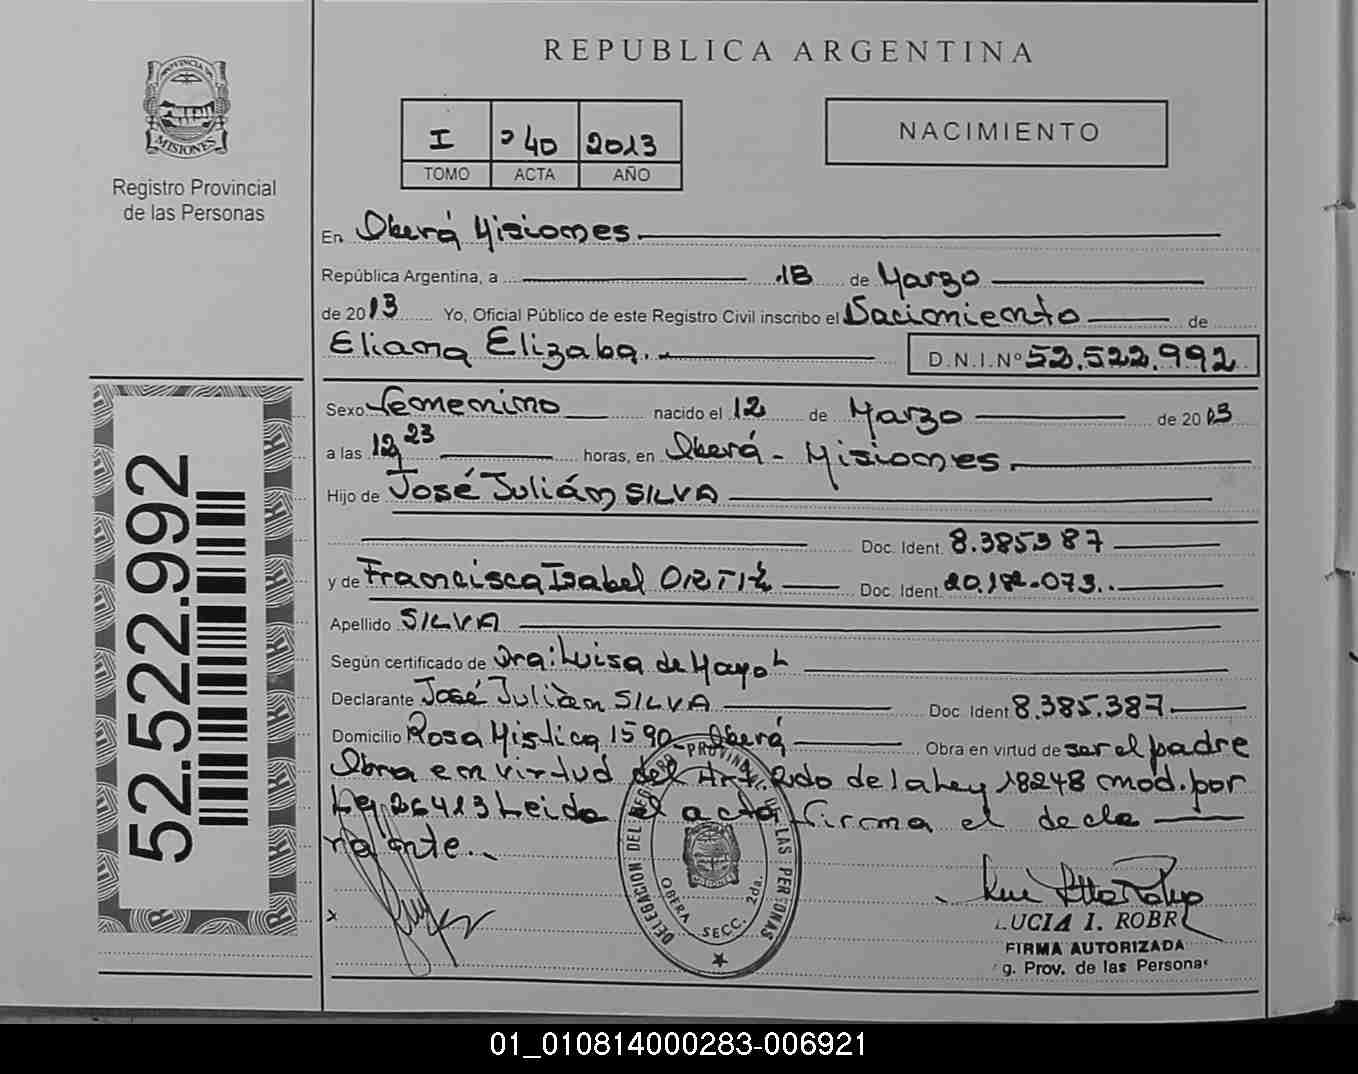 REPUBLICA ARGENTINA
PROVINCIA DE
MISIONES
Registro Provincial
de las Personas
I 240 2013
TOMO ACTA AÑO
NACIMIENTO
En Oberá Misiones
República Argentina, a 18 de Marzo
de 2013 Yo, Oficial Público de este Registro Civil inscribo el Nacimiento de
Eliana Elizaba. D.N.I.Nº 52.522.992
Sexo Femenino nacido el 12 de Marzo de 2013
a las 12,23 horas, en Oberá - Misiones.
Hijo de José Julián SILVA
Doc. Ident. 8.385387
y de Francisca Isabel ORTIZ Doc. Ident. 20.182.073.
Apellido SILVA
Según certificado de Dra: Luisa de Mayol
Declarante José Julián SILVA Doc. Ident 8.385.387
Domicilio Rosa Mistica 1590 Oberá Obra en virtud de ser el padre
Obra en virtud del Art. 2do de la Ley 18248 mod. por
Ley 26413 Leida el acta firma el decla
rante.
52.522.992
DELEGACION DEL REGISTRO PROVINCIAL DE LAS PERSONAS
OBERA SECC. 2da.
LUCIA I. ROBR
FIRMA AUTORIZADA
g. Prov. de las Personas
01_010814000283-006921